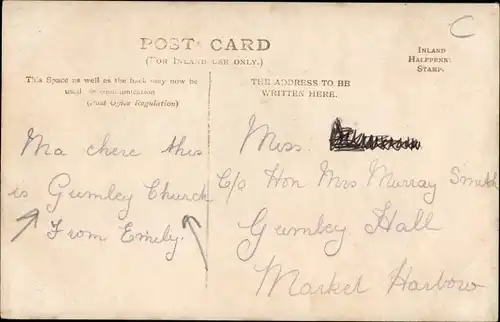 C
POST CARD
(FOR INLAND USE ONLY.)
INLAND
HALFPENNY
STAMP.
This Space as well as the back may now be
used for communication
(Post Office Regulation)
THE ADDRESS TO BE
WRITTEN HERE.
Ma chere this
is Gumley Church
From Emily.
Miss
C/o Hon Mrs Murray Smith
Gumley Hall
Market Harboro